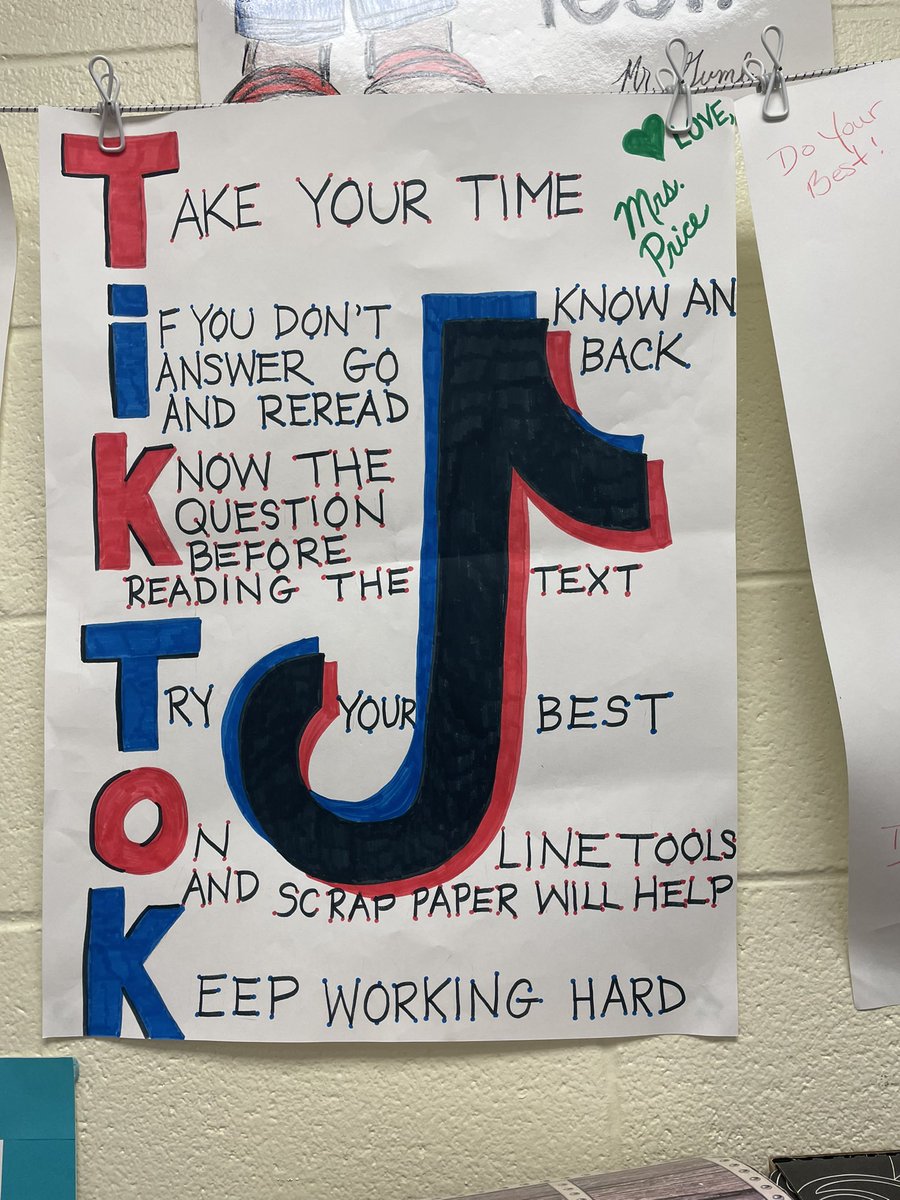 Test!
Mr. Gum
LOVE,
Mrs.
Price
Do Your
Best!
TAKE YOUR TIME
IF YOU DON'T KNOW AN
ANSWER GO BACK
AND REREAD
KNOW THE
QUESTION
BEFORE
READING THE TEXT
TRY YOUR BEST
ON LINE TOOLS
AND SCRAP PAPER WILL HELP
KEEP WORKING HARD